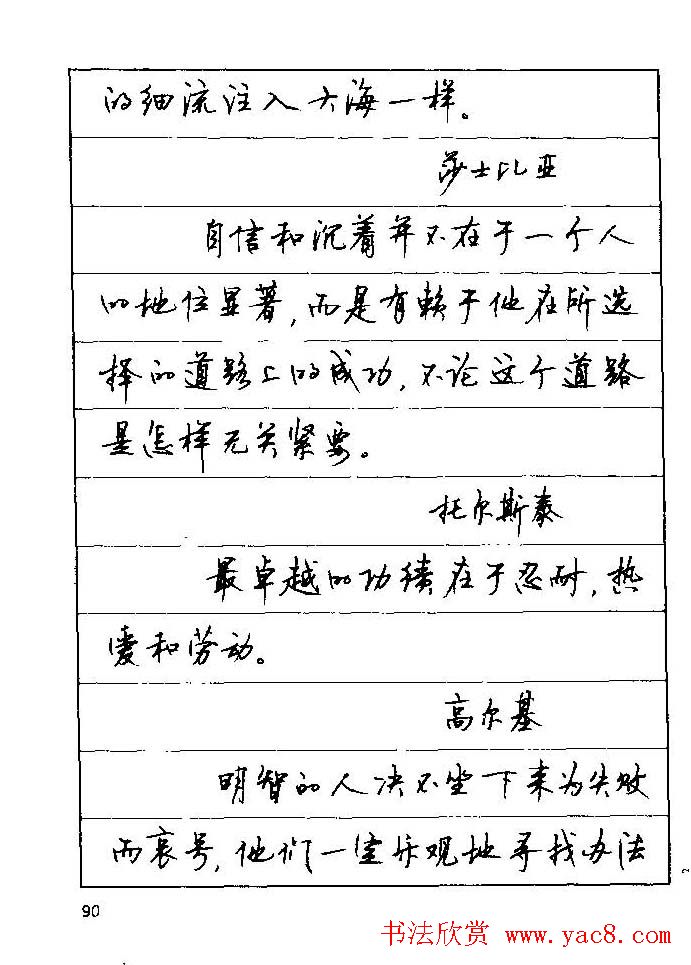 的细流注入大海一样。
莎士比亚
自信和沉着并不在于一个人
的地位显著,而是有赖于他在所选
择的道路上的成功,不论这个道路
是怎样无关紧要。
托尔斯泰
最卓越的功绩在于忍耐,热
爱和劳动。
高尔基
明智的人决不坐下来为失败
而哀号,他们一定乐观地寻找办法
90
书法欣赏 www.yac8.com